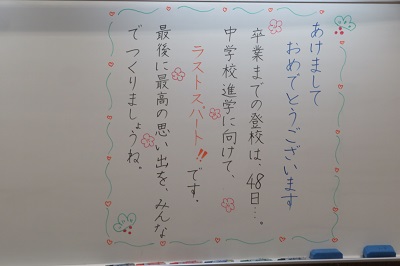 あけまして
おめでとうございます
卒業までの登校は、48日…。
中学校進学に向けて、
ラストスパート!!です。
最後に最高の思い出を、みんな
でつくりましょうね。